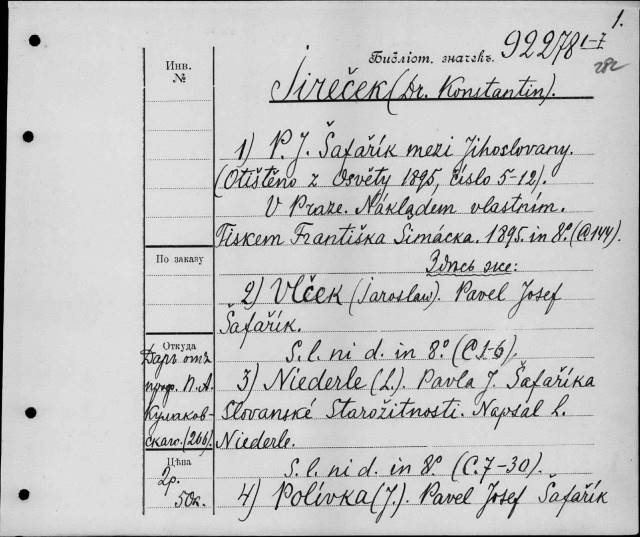 1.
Библіот. значекъ. 92278 1-7
282
Инв.
№
Jireček (Dr. Konstantin).
1) P. J. Šafařík mezi Jihoslovany.
(Otištěno z Osvěty 1895, číslo 5-12).
V Praze. Nákladem vlastním.
Tiskem Františka Šimáčka. 1895. in 8º. (С. 144).
По заказу
Здѣсь же:
2) Vlček (Jaroslaw). Pavel Josef
Šafařík.
S. l. ni d. in 8º. (С. 1-6).
Откуда
Даръ отъ
проф. П. А.
Кулаков-
скаго. (266).
3) Niederle (L.). Pavla J. Šafaříka
Slovanské Starožitnosti. Napsal L.
Niederle.
Цѣна
2р.
50к.
S. l. ni d. in 8º. (С. 7-30).
4) Polívka (J.). Pavel Josef Šafařík